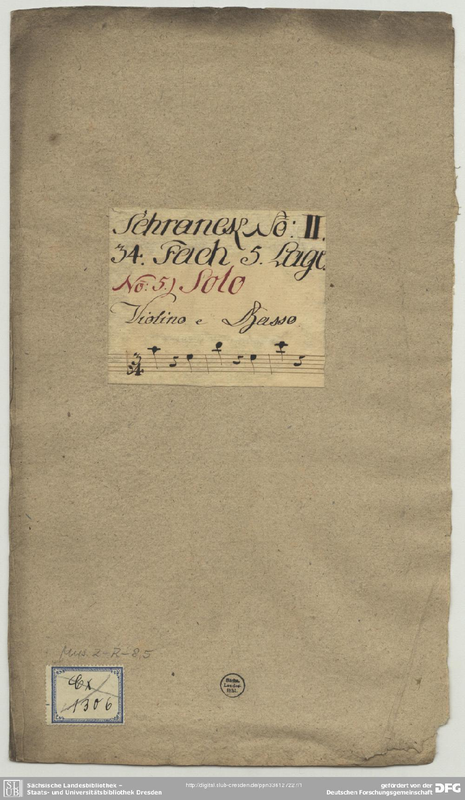 Schranck No: II.
34. Fach 5. Lage.
No: 5.) Solo
Violino e Basso
3/4
Mus. 2-R-8.5
Cx
1306
Sächs.
Landes-
Bibl.
Sächsische Landesbibliothek –
Staats- und Universitätsbibliothek Dresden
gefördert von der
Deutschen Forschungsgemeinschaft
DFG